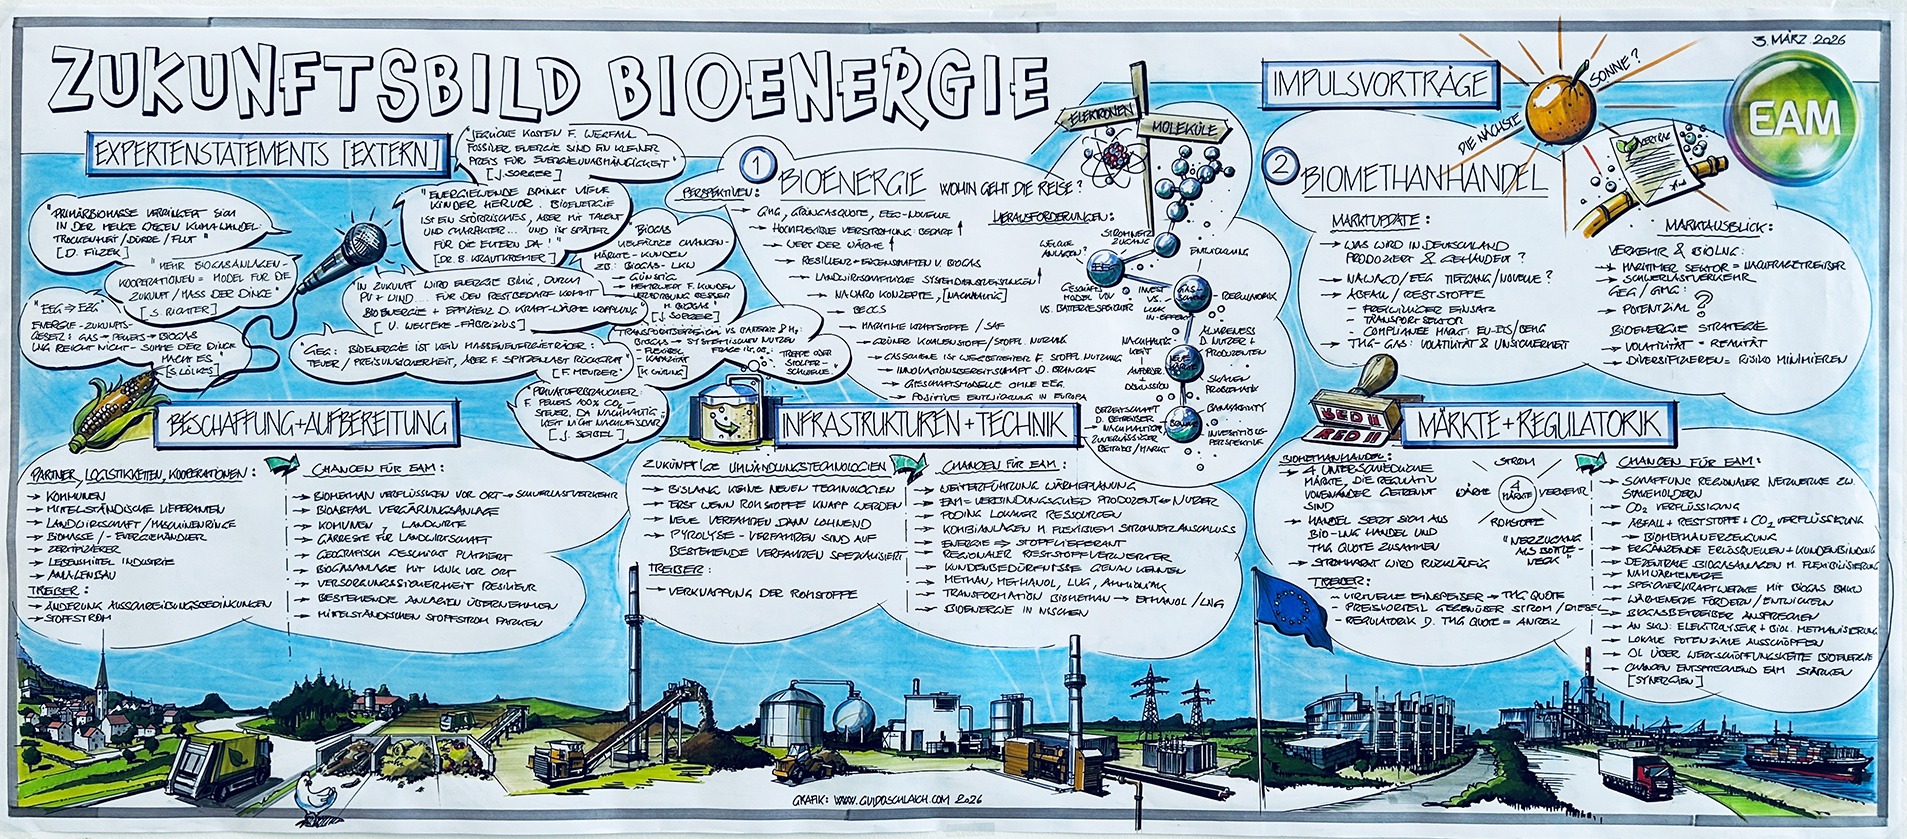 3. MÄRZ 2026
ZUKUNFTSBILD BIOENERGIE
EAM
EXPERTENSTATEMENTS [EXTERN]
"JEGLICHE KOSTEN F. WEGFALL
FOSSILER ENERGIE SIND EIN KLEINER
PREIS FÜR ENERGIEUNABHÄNGIGKEIT"
[J. SORGER]
"PRIMÄRBIOMASSE VERRINGERT SICH
IN DER MENGE WEGEN KLIMAWANDEL:
TROCKENHEIT / DÜRRE / FLUT"
[D. FILZEK]
"ENERGIEWENDE BRINGT VIELE
KINDER HERVOR. BIOENERGIE
IST EIN STÖRRISCHES, ABER MIT TALENT
UND CHARAKTER... UND IST SPÄTER
FÜR DIE ELTERN DA!"
[DR. B. KRAUTKREMER]
"MEHR BIOGASANLAGEN-
KOOPERATIONEN = MODEL FÜR DIE
ZUKUNFT / MASS DER DINGE"
[S. RICHTER]
"BIOGAS
VIELFÄLTIGE CHANCEN-
MÄRKTE - KUNDEN
ZB: BIOGAS - LKW
→ GÜNSTIG
→ MEHRWERT F. KUNDEN
[J. SORGER]
"EEG → EZG
ENERGIE-ZUKUNFTS-
GESETZ! GAS → PELLETS → BIOGAS
LNG REICHT NICHT - SUMME DER DINGE
MACHT ES"
[S. LÖLKES]
"IN ZUKUNFT WIRD ENERGIE BILLIG, DURCH
PV + WIND... FÜR DEN RESTBEDARF KOMMT
BIOENERGIE + EFFIZIENZ D. KRAFT-WÄRME KOPPLUNG
[U. WELTEKE-FABRICIUS]
"GEG: BIOENERGIE IST KEIN MASSENENERGIETRÄGER:
TEUER / PREISUNSICHERHEIT, ABER F. SPITZENLAST RÜCKGRAT"
[F. MEURER]
BIOGAS → SYSTEMISCHEN NUTZEN
- FLEXIBEL
KAPAZITÄT
TREPPE ODER
STOLPER-
SCHWELLE.
"PRIVATVERBRAUCHER:
F. PELLETS 100% CO₂-
STEUER, DA NACHHALTIG-
KEIT NICHT NACHWEISBAR"
[J. SEIBEL]
1
BIOENERGIE WOHIN GEHT DIE REISE?
PERSPEKTIVEN:
→ GMG, GRÜNGASQUOTE, EEG-NOVELLE
→ HOCHFLEXIBLE VERSTROMUNG BEDARF ↑
→ WERT DER WÄRME ↑
→ RESILIENZ-EIGENSCHAFTEN V. BIOGAS
→ LANDWIRTSCHAFTLICHE SYSTEMDIENSTLEISTUNGEN
→ NAWARO KONZEPTE, [NACHHALTIG]
→ BECCS
→ MARITIME KRAFTSTOFFE / SAF
→ GRÜNER KOHLENSTOFF / STOFFL. NUTZUNG
→ GASSCHIENE IST WEGBEREITER F. STOFFL. NUTZUNG
→ INNOVATIONSBEREITSCHAFT D. BRANCHE
→ GESCHÄFTSMODELLE OHNE EEG
→ POSITIVE ENTWICKLUNG IN EUROPA
ELEKTRONEN
MOLEKÜLE
HERAUSFORDERUNGEN:
WELCHE
ANLAGEN?
STROMNETZ
ZUGANG
ENTWICKLUNG
EEG
GESCHÄFTS
MODEL VOV
VS. BATTERIESPEICHER
INVEST
VS.
GAS-
SCHIENE
REGULATORIK
AWARENESS
D. NUTZER +
PRODUZENTEN
NACHHALTIG-
KEIT
WÄRME
SILODENKEN
PROBLEMATIK
BEREITSCHAFT
D. BETREIBER
→ NACHHALTIG
ZUVERLÄSSIGER
BETRIEB / MARKT
BANKABILITY
INVESTITIONS-
PERSPEKTIVE
IMPULSVORTRÄGE
DIE NÄCHSTE SONNE?
2
BIOMETHANHANDEL
VERTRAG
MARKTUPDATE:
→ WAS WIRD IN DEUTSCHLAND
PRODUZIERT & GEHANDELT?
→ NAWARO / EEG TIEFGANG / NOVELLE?
→ ABFALL / RESTSTOFFE
- FREIWILLIGER EINSATZ
- TRANSPORTSEKTOR
- COMPLIANCE MARKT EU-ETS / BEHG
→ THG-GAS: VOLATILITÄT & UNSICHERHEIT
MARKTAUSBLICK:
VERKEHR & BIOLNG:
→ MARITIMER SEKTOR = NACHFRAGETREIBER
→ SCHWERLASTVERKEHR
GEG / GMG:
→ POTENZIAL?
BIOENERGIE STRATEGIE
→ VOLATILITÄT = REALITÄT
→ DIVERSIFIZIEREN = RISIKO MINIMIEREN
BESCHAFFUNG + AUFBEREITUNG
PARTNER, LOGISTIKKETTEN, KOOPERATIONEN:
→ KOMMUNEN
→ MITTELSTÄNDISCHE LIEFERANTEN
→ LANDWIRTSCHAFT / MASCHINENRINGE
→ BIOMASSE / - ENERGIEHÄNDLER
→ ZERTIFIZIERER
→ LEBENSMITTEL INDUSTRIE
→ ANLAGENBAU
TREIBER:
→ ÄNDERUNG AUSSCHREIBUNGSBEDINGUNGEN
→ STOFFSTROM
CHANCEN FÜR EAM:
→ BIOMETHAN VERFLÜSSIGEN VOR ORT → SCHWERLASTVERKEHR
→ BIOABFALL VERGÄRUNGSANLAGE
→ KOMMUNEN, LANDWIRTE
→ GÄRRESTE FÜR LANDWIRTSCHAFT
→ GEOGRAFISCH GESCHICKT PLATZIERT
→ BIOGASANLAGE MIT KNOW VOR ORT
→ VERSORGUNGSSICHERHEIT RESILIENZ
→ BESTEHENDE ANLAGEN ÜBERNEHMEN
→ MITTELSTÄNDISCHEN STOFFSTROM PARKEN
INFRASTRUKTUREN + TECHNIK
ZUKÜNFTIGE UMWANDLUNGSTECHNOLOGIEN
→ BISLANG KEINE NEUEN TECHNOLOGIEN
→ ERST WENN ROHSTOFFE KNAPP WERDEN
→ NEUE VERFAHREN DANN LOHNEND
→ PYROLYSE - VERFAHREN SIND AUF
BESTEHENDE VERFAHREN SPEZIALISIERT
TREIBER:
→ VERKNAPPUNG DER ROHSTOFFE
CHANCEN FÜR EAM:
→ WEITERFÜHRUNG WÄRMEPLANUNG
→ EAM = VERBINDUNGSGLIED PRODUZENT ↔ NUTZER
→ POOLING LOKALER RESSOURCEN
→ KOMBIANLAGEN M. FLEXIBLEM STROMNETZANSCHLUSS
→ ENERGIE ⇒ STOFFLIEFERANT
→ REGIONALER RESTSTOFFVERWERTER
→ KUNDENBEDÜRFNISSE GENAU KENNEN
→ METHAN, METHANOL, LNG, AMMONIAK
→ TRANSFORMATION BIOMETHAN → ETHANOL / LNG
→ BIOENERGIE IN NISCHEN
RED II
RED II
MÄRKTE + REGULATORIK
BIOMETHANHANDEL:
→ 4 UNTERSCHIEDLICHE
MÄRKTE, DIE REGULATIV
VONEINANDER GETRENNT
SIND
→ HANDEL SETZT SICH AUS
BIO-LNG HANDEL UND
THG QUOTE ZUSAMMEN
→ STROMMARKT WIRD RÜCKLÄUFIG
STROM
WÄRME
4
MÄRKTE
VERKEHR
ROHSTOFFE
"NETZZUGANG
ALS BOTTLE-
NECK"
TREIBER:
- VIRTUELLE EINSPEISER → THG QUOTE
- PREISVORTEIL GEGENÜBER STROM / DIESEL
- REGULATORIK D. THG QUOTE = ANREIZ
CHANCEN FÜR EAM:
→ SCHAFFUNG REGIONALER NETZWERKE ZW.
STAKEHOLDERN
→ CO₂ VERFLÜSSIGUNG
→ ABFALL + RESTSTOFFE + CO₂ VERFLÜSSIGUNG
→ BIOMETHANERZEUGUNG
→ ERGÄNZENDE ERLÖSQUELLEN + KUNDENBINDUNG
→ DEZENTRALE BIOGASANLAGEN M. FLEXIBILISIERUNG
→ NAHWÄRMENETZE
→ SPEICHERKRAFTWERKE MIT BIOGAS BHKW
→ WÄRMENETZE FÖRDERN / ENTWICKELN
→ BIOGASBETREIBER ANSPRECHEN
→ AN SKW: ELEKTROLYSEUR + BIOL. METHANISIERUNG
→ LOKALE POTENZIALE AUSSCHÖPFEN
→ DL ÜBER WERTSCHÖPFUNGSKETTE BIOENERGIE
→ CHANCEN ENTSPRECHEND EAM STÄRKEN
[SYNERGIEN]
GRAFIK: WWW.GUIDOSCHLAICH.COM 2026